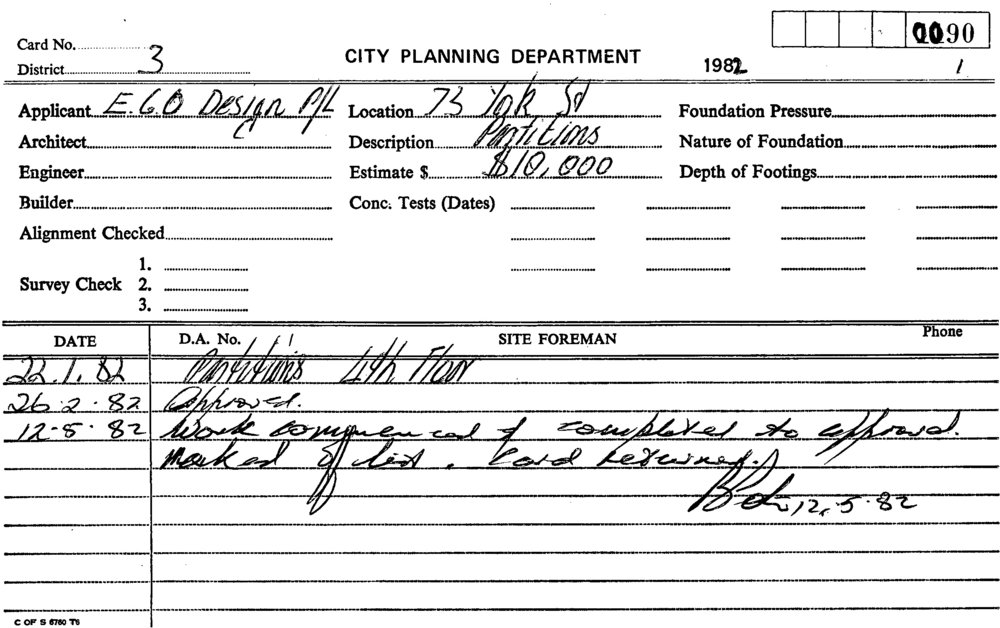 0090
Card No. 3
District
CITY PLANNING DEPARTMENT
1982 1
Applicant E.G.O Design P/L Location 73 York St Foundation Pressure
Architect Description Partitions Nature of Foundation
Engineer Estimate $ $10,000 Depth of Footings
Builder Conc. Tests (Dates)
Alignment Checked
1.
Survey Check 2.
3.
DATE D.A. No. SITE FOREMAN Phone
22.1.82 Partitions 4th Floor
26.2.82 Approved.
12-5.82 Work commenced & completed to approval.
Marked off list. Card returned.
12.5.82
C OF S 6760 T6